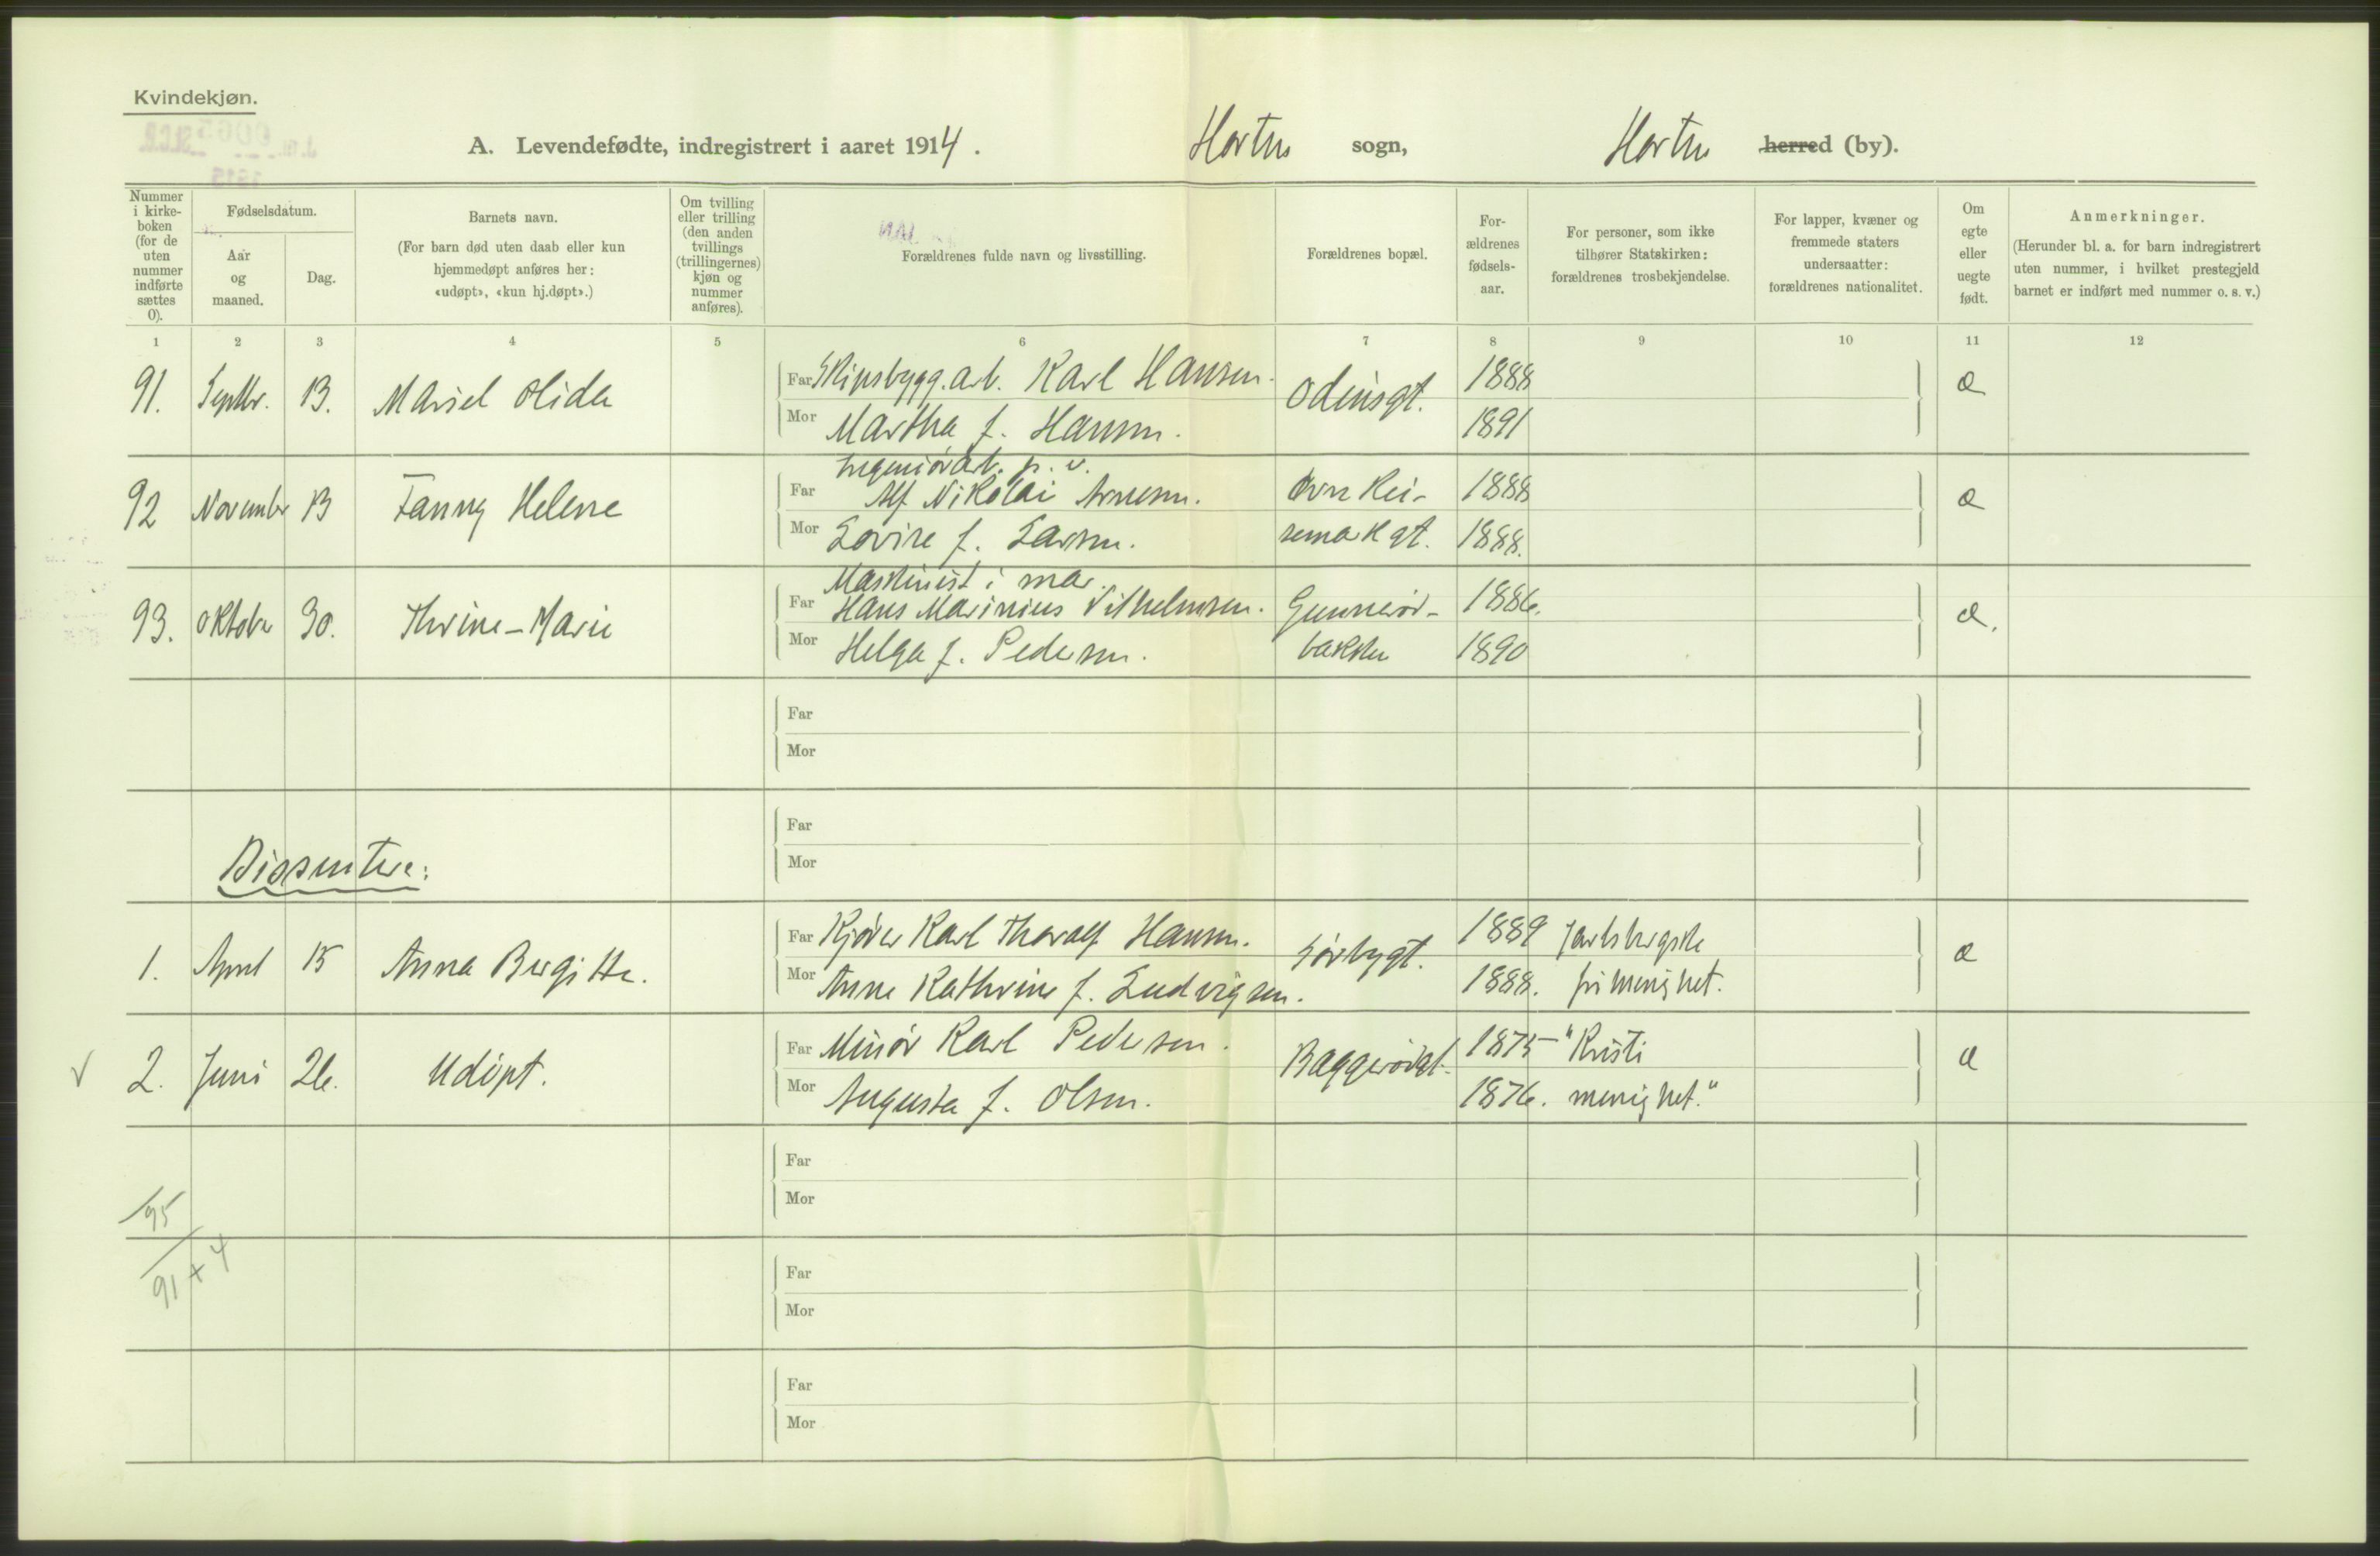 Kvindekjøn.
A. Levendefødte, indregistrert i aaret 1914. Horten sogn, Horten herred (by).
Nummer i kirke-boken (for de uten nummer indførte sættes 0).
Fødselsdatum.
Aar og maaned.
Dag.
Barnets navn.
(For barn død uten daab eller kun hjemmedøpt anføres her: «udøpt», «kun hj.døpt».)
Om tvilling eller trilling (den anden tvillings (trillingernes) kjøn og nummer anføres).
Forældrenes fulde navn og livsstilling.
Forældrenes bopæl.
For-ældrenes fødsels-aar.
For personer, som ikke tilhører Statskirken: forældrenes trosbekjendelse.
For lapper, kvæner og fremmede staters undersaatter: forældrenes nationalitet.
Om egte eller uegte født.
Anmerkninger.
(Herunder bl. a. for barn indregistrert uten nummer, i hvilket prestegjeld barnet er indført med nummer o. s. v.)
1 2 3 4 5 6 7 8 9 10 11 12
91. Septbr. 13. Marsel Olida Far Skipsbygg.arb. Karl Hansen. Odinsgt. 1888 æ
Mor Martha f. Hansen. 1891
Ingeniørarb. p. v.
92 November 13 Fanny Helene Far Alf Nikolai Arnesen. Øvre Kei- 1888 æ
Mor Lovise f. Larsen. semark gt. 1888.
Maskinist i mar.
93. Oktober 30. Thrine-Marie Far Hans Marinius Vilhelmsen. Gunnerød- 1886. æ.
Mor Helga f. Pedersen. bakken 1890
Far
Mor
Far
Dissentere:
Mor
1. April 15 Anna Birgitte. Far Kjører Karl Thoralf Hansen. Sørbygt. 1889 Jarlsbergske æ
Mor Anne Kathrine f. Ludvigsen. 1888. frimenighet.
2. Juni 26. Udøpt. Far Minør Karl Pedersen. Baggerødgt. 1875 "Kristi æ
Mor Augusta f. Olsen. 1876. menighet."
Far
Mor
95
91 + 4
Far
Mor
Far
Mor